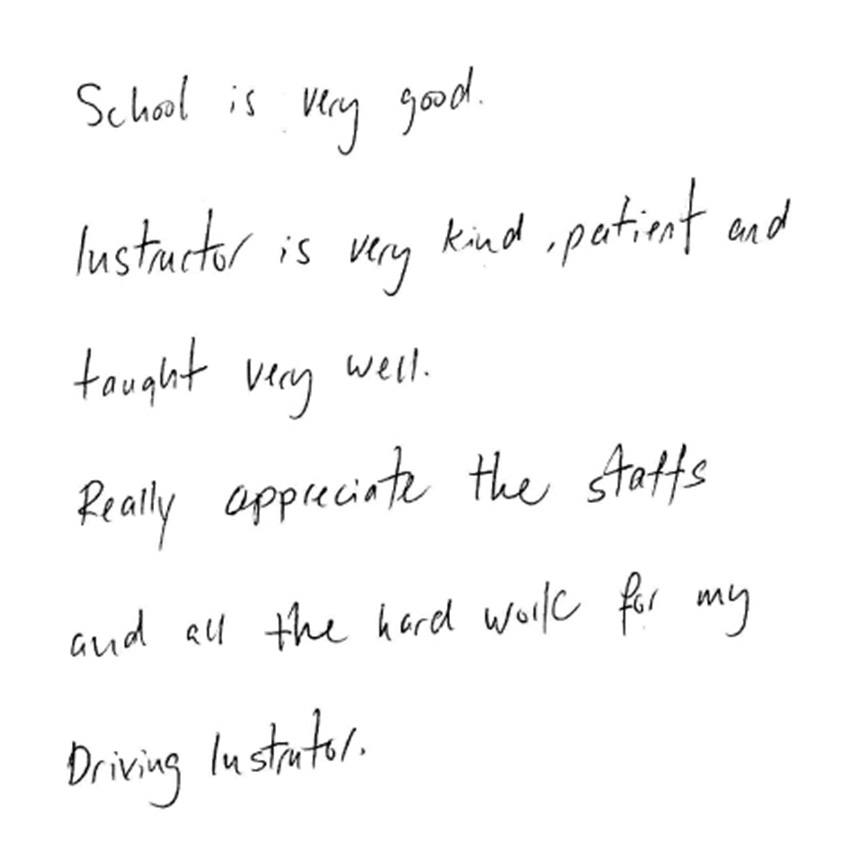 School is very good.
Instructor is very kind, patient and
taught very well.
Really appreciate the staffs
and all the hard work for my
Driving Instrutor.